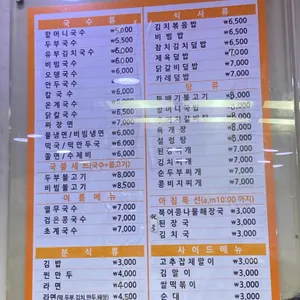 국 수 류
할머니국수 ₩5,000
두부국수 ₩6,500
유부김치국수 ₩6,000
비빔국수 ₩6,000
오뎅국수 ₩6,000
만두국수
칼국수
온계국수
닭칼국수
짜장면
물냉면/비빔냉면
떡국/떡만두국
쫄면/수제비 ₩6,000
국물세트(국수+불고기)
두부불고기 ₩8,000
비빔불고기 ₩8,500
여 름 메 뉴
열무국수 ₩7,000
검은콩국수 ₩7,000
초계국수 ₩7,000
분 식 류
김 밥 ₩3,000
찐 만 두 ₩4,500
라 면 ₩4,000
라면(떡,두부,김치,만두,해장) ₩4,500
식 사 류
김치볶음밥 ₩6,500
비 빔 밥 ₩6,500
참치김치덮밥 ₩6,500
제육덮밥 ₩7,000
닭갈비덮밥 ₩7,000
카레덮밥 ₩7,000
탕 류
뚝배기불고기 ₩8,000
육 개 장
설 렁 탕
된장찌개
김치찌개
순두부찌개 ₩7,000
콩비지찌개 ₩7,000
아 침 특 선(a.m10:00 까지)
북어콩나물해장국 ₩3,000
된 장 국 ₩3,000
김 치 국 ₩3,000
사 이 드 메 뉴
고추잡채말이 ₩3,000
김 말 이 ₩3,000
쌀떡볶이 ₩3,000
순 대